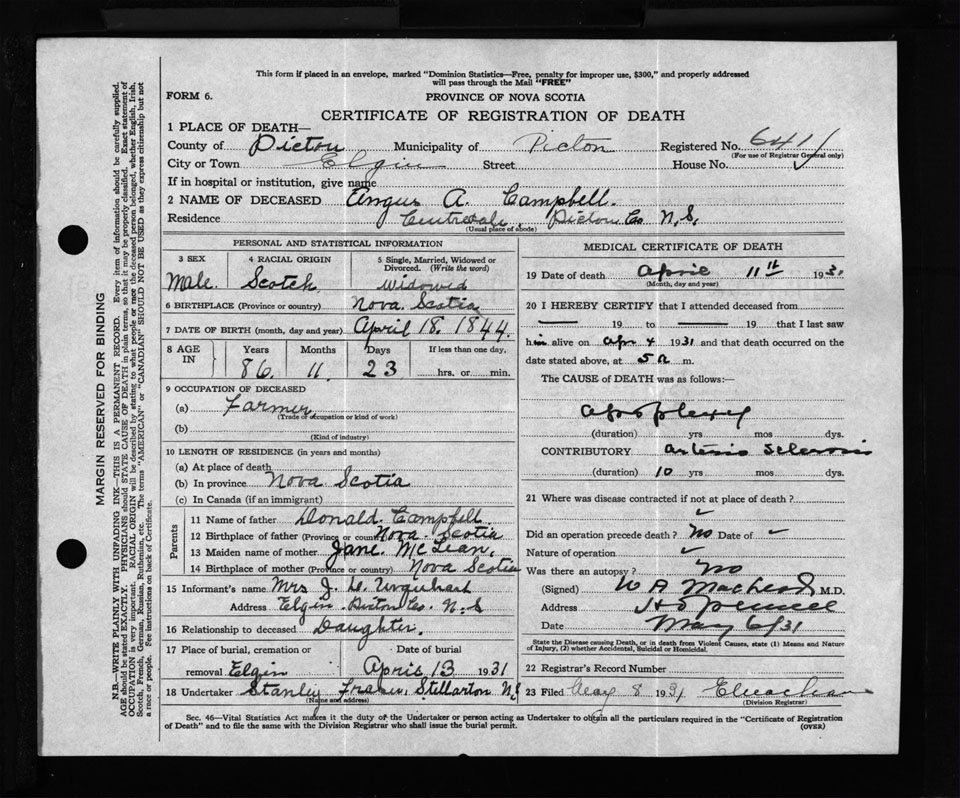 This form if placed in an envelope, marked "Dominion Statistics—Free, penalty for improper use, $300," and properly addressed
will pass through the Mail "FREE"
FORM 6.
PROVINCE OF NOVA SCOTIA
CERTIFICATE OF REGISTRATION OF DEATH
1 PLACE OF DEATH—
County of Pictou Municipality of Picton Registered No. 641
(For use of Registrar General only)
City or Town Elgin Street House No.
If in hospital or institution, give name
2 NAME OF DECEASED Angus A. Campbell.
Residence Centredale Pictou Co N.S.
(Usual place of abode)
PERSONAL AND STATISTICAL INFORMATION
3 SEX 4 RACIAL ORIGIN 5 Single, Married, Widowed or Divorced. (Write the word)
Male. Scotch Widowed
6 BIRTHPLACE (Province or country) Nova Scotia
7 DATE OF BIRTH (month, day and year) April 18. 1844.
8 AGE IN Years Months Days If less than one day,
86. 11. 23 hrs. or min.
9 OCCUPATION OF DECEASED
(a) Farmer
(Trade of occupation or kind of work)
(b)
(Kind of industry)
10 LENGTH OF RESIDENCE (in years and months)
(a) At place of death
(b) In province Nova Scotia
(c) In Canada (if an immigrant)
Parents
11 Name of father Donald Campbell
12 Birthplace of father (Province or country) Nova Scotia
13 Maiden name of mother Jane McLean.
14 Birthplace of mother (Province or country) Nova Scotia
15 Informant's name Mrs J. Urquhart
Address Elgin Pictou Co. N.S
16 Relationship to deceased Daughter.
17 Place of burial, cremation or Date of burial
removal Elgin April 13 1931
18 Undertaker Stanley Fraser Stellarton N.S
(Name and address)
MEDICAL CERTIFICATE OF DEATH
19 Date of death April 11th 1931
(Month, day and year)
20 I HEREBY CERTIFY that I attended deceased from
— 19 to — 19 that I last saw
him alive on Apr 4 1931 and that death occurred on the
date stated above, at 5 a m.
The CAUSE of DEATH was as follows:—
apoplexy
(duration) yrs mos dys.
CONTRIBUTORY arterio Sclerosis
(duration) 10 yrs mos dys.
21 Where was disease contracted if not at place of death?
Did an operation precede death? No Date of
Nature of operation
Was there an autopsy? No
(Signed) W A MacLeod M.D.
Address Hopewell
Date May 6/31
State the Disease causing Death, or in death from Violent Causes, state (1) Means and Nature
of Injury, (2) whether Accidental, Suicidal or Homicidal.
22 Registrar's Record Number
23 Filed May 8 1931
(Division Registrar)
Sec. 46—Vital Statistics Act makes it the duty of the Undertaker or person acting as Undertaker to obtain all the particulars required in the "Certificate of Registration
of Death" and to file the same with the Division Registrar who shall issue the burial permit.
(OVER)
MARGIN RESERVED FOR BINDING
N.B.—WRITE PLAINLY WITH UNFADING INK—THIS IS A PERMANENT RECORD. Every item of information should be carefully supplied.
AGE should be stated EXACTLY. PHYSICIANS should STATE CAUSE OF DEATH in plain terms, so that it may be properly classified. Exact statement of
OCCUPATION is very important. RACIAL ORIGIN will be described by stating to what people or race the deceased person belonged, whether English, Irish,
Scotch, French, German, Russian, Ruthenian, etc. The terms "AMERICAN" or "CANADIAN" SHOULD NOT BE USED as they express citizenship but not
a race or people. See instructions on back of Certificate.